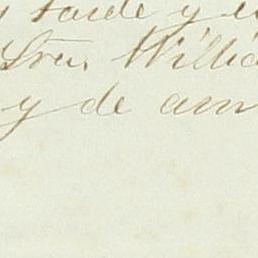 y tarde y e
Sres. Willia
y de am